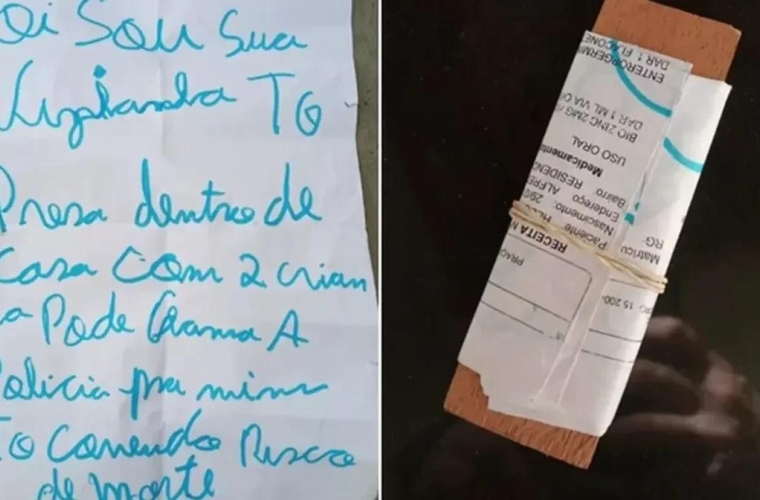 Oi Sou Sua
TO
Presa dentro de
Casa Com 2 crian
a Pode Chama A
Policia pra mim
TO Correndo Risco
de morte
PRAD
15.200-
RECEITA M
Paciente Matricu
Nascimento: 29 RG:
Endereço ALFRE
Bairro: RESIDENC
Medicamento
USO ORAL
BIO ZINC 2MG
DAR 1 ML VIA O
ENTEROGERMI
DAR 1 FLACONE